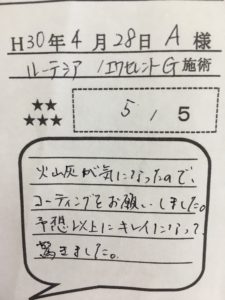 H30年4月28日 A 様
ルーテシア / エクセレントG 施術
★★
★★★
5 / 5
火山灰が気になったので、
コーティングをお願いしました。
予想以上にキレイになって、
驚きました。